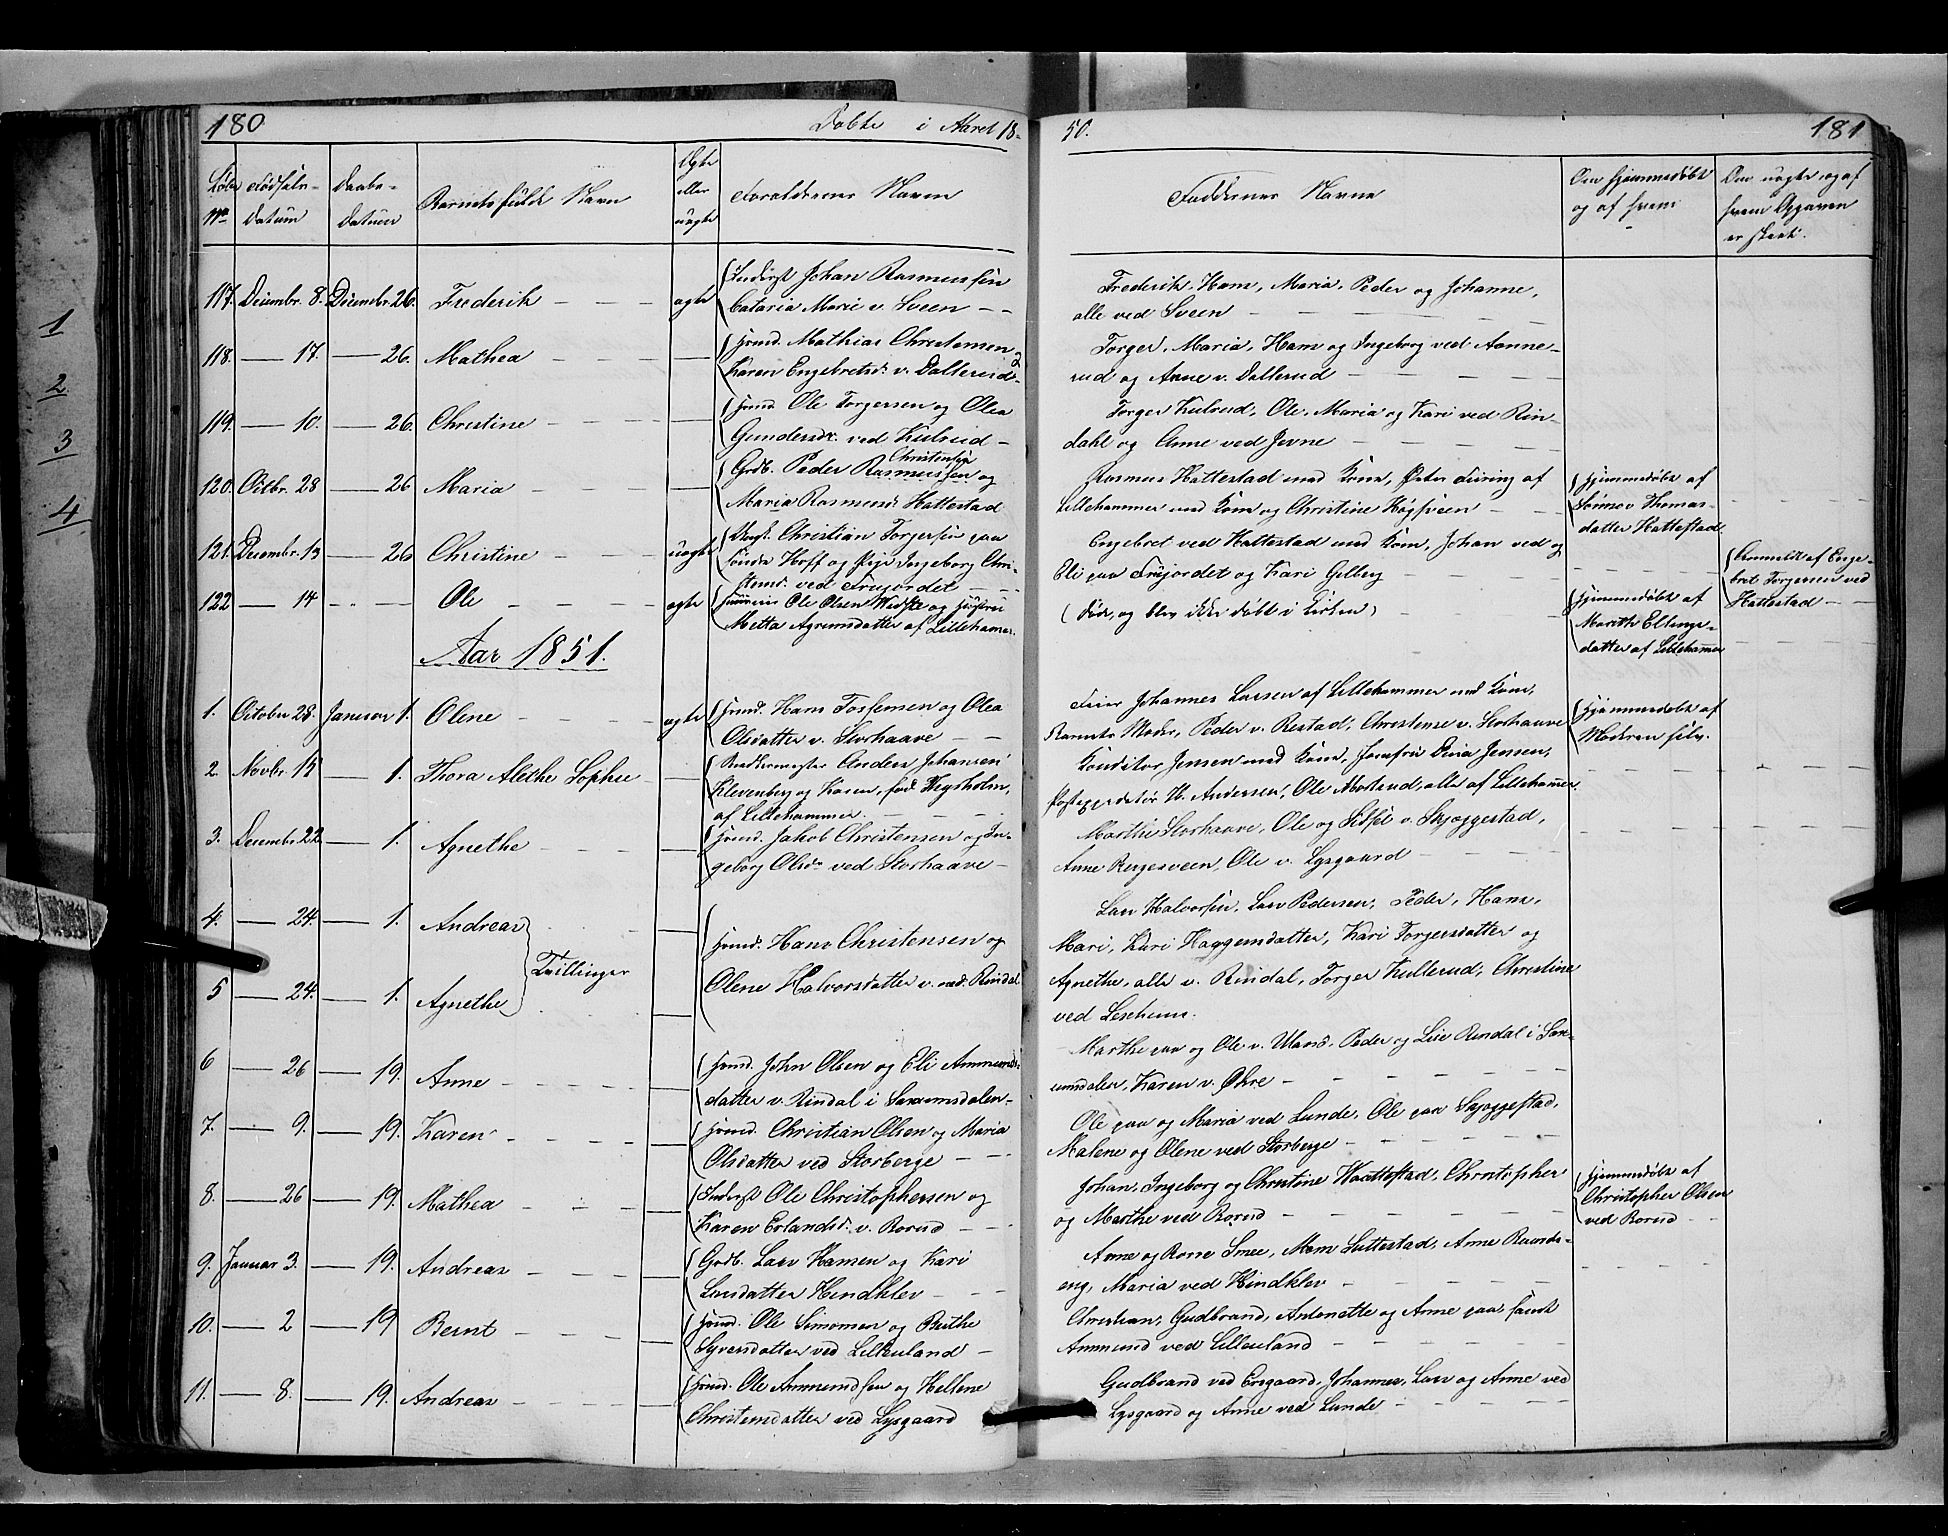 180
Døbte i Aaret 18-
50.
181
Løbe No.
Fødsels-datum
Daabs-datum
Barnets fulde Navn
Ægte eller uægte
Forældrenes Navne
Faddernes Navne
Om hjemmedøbt og af hvem
Om uægte, og af hvem Opgaven er skeet.
117. Decembr. 8. Decembr. 26. Frederik — — — ægte
Inderst Johan Rasmussen
Cataria Marie v. Sveen — —
Frederik, Hans, Maria, Peder og Johanne,
alle ved Sveen
118. — 17. — 26. Mathea — — —
Huusmd. Mathias Christensen
Karen Engebretsd. v. Dallerud
Torger, Maria, Hans og Ingeborg ved Aanne-
rud og Anne v. Dallerud
119. — 10. — 26. Christine — — —
Huusmd. Ole Torgersen og Olea
Gundersdr. ved Kulrud —
Torger Kulrud, Ole, Maria og Kari ved Rin-
dahl og Anne ved Jevne
120. Octbr. 28 — 26 Maria — — —
Christensen
Grdb. Peder Rasmussen og
Maria Rasmusd. Hattestad
Rasmus Hattestad med Kone, Peter af
Lillehammer med Kone og Christine Høgsveen
Hjemmedøbt af
Thomas-
datter Hattestad
121. Decembr. 13 — 26 Christine — — — uægte
Ungk. Christian Torgersen paa
Søndre Hoff og Pige Ingeborg Chri-
stensd. ved Frujordet
Engebret ved Hattestad med Kone, Johan ved og
Eli paa Frujordet og Kari Gilberg
Anmeldt af Enge-
bret Torgersen ved
Hattestad
122 — 14 — — Ole — — — ægte
Ole Olsen og Hustru
Metta Agrimsdatter af Lillehamer.
(Døde, og blev ikke døbt i Kirken)
Hjemmedøbt af
Marith Ellings-
datter af Lillehamer
Aar 1851.
1. October 28. Januar 1. Olene — — — ægte
Huusmd. Hans Tostensen og Olea
Olsdatter v. Storhaave
Johannes Larsen af Lillehammer med Kone,
Barnets Moder, Peder v. Restad, Christense v. Storhaave
Hjemmedøbt af
Moderen selv.
2. Novbr. 15 — 1. Thora Alethe Sophie —
Anders Johansen
Klevenberg og Karen, fød Wegsholm,
af Lillehammer
Konditor Jensen med Kone, Jomfru Dina Jensen,
Postexpeditør H. Andersen, Ole Mostad, alle af Lillehamer
3. Decembr. 22 — 1. Agnethe — — —
Huusmd. Jakob Christensen og In-
geborg Olsdr. ved Storhaave —
Marthe Storhaave, Ole og Siste v. Skjøggestad,
Anne Bergesveen, Ole v. Lysgaard
4. — 24. — 1. Andreas
5 — 24. — 1. Agnethe
Tvillinger
Huusmd. Hans Christensen og
Olene Halvorsdatter v. ned. Rindal
Lars Halvorsen, Lars Pedersen, Peder, Hans,
Mari, Kari Haggensdatter, Kari Torgersdatter og
Agnethe, alle v. Rindal, Torger Kullerud, Christine
ved Lischuus.
6 — 26 — 19. Anne — — —
Huusmd. John Olsen og Eli Ammunds-
datter v. Rindal i Saxumsdalen
Marthe paa og Ole v. Uland, Peder og Lise Rindal i Sax-
umsdalen, Karen v. Øhre
7. — 9. — 19. Karen — — —
Huusmd. Christian Olsen og Maria
Olsdatter ved Storberge
Ole paa og Maria ved Lunde, Ole paa Skjøggestad,
Malene og Olene ved Storberge
8. — 26 — 19. Mathea — — —
Inderst Ole Christophersen og
Karen Erlandsdr. v. Rorud
Johan, Ingeborg og Christine Haattestad, Christopher
og Marthe ved Rorud
Hjemmedøbt af
Christopher Olsen
ved Rorud
9. Januar 3. — 19. Andreas — — —
Grdb. Lars Hansen og Kari
Larsdatter Hindklev
Anne og Rorre Smee, Mons Suttestad, Anne Rands-
eng, Maria ved Hindklev
10. — 2 — 19 Bernt — — —
Huusmd. Ole Simonsen og Berthe
Syversdatter ved Lilleuland —
Christian, Gudbrand, Antonette og Anne paa samt
Ammund ved Lilleuland
11. — 8. — 19. Andreas — — —
Huusmd. Ole Ammundsen og Hellene
Christensdatter ved Lysgaard
Gudbrand ved Ersgaard, Johannes, Lars og Anne ved
Lysgaard og Anne ved Lunde
1
2
3
4